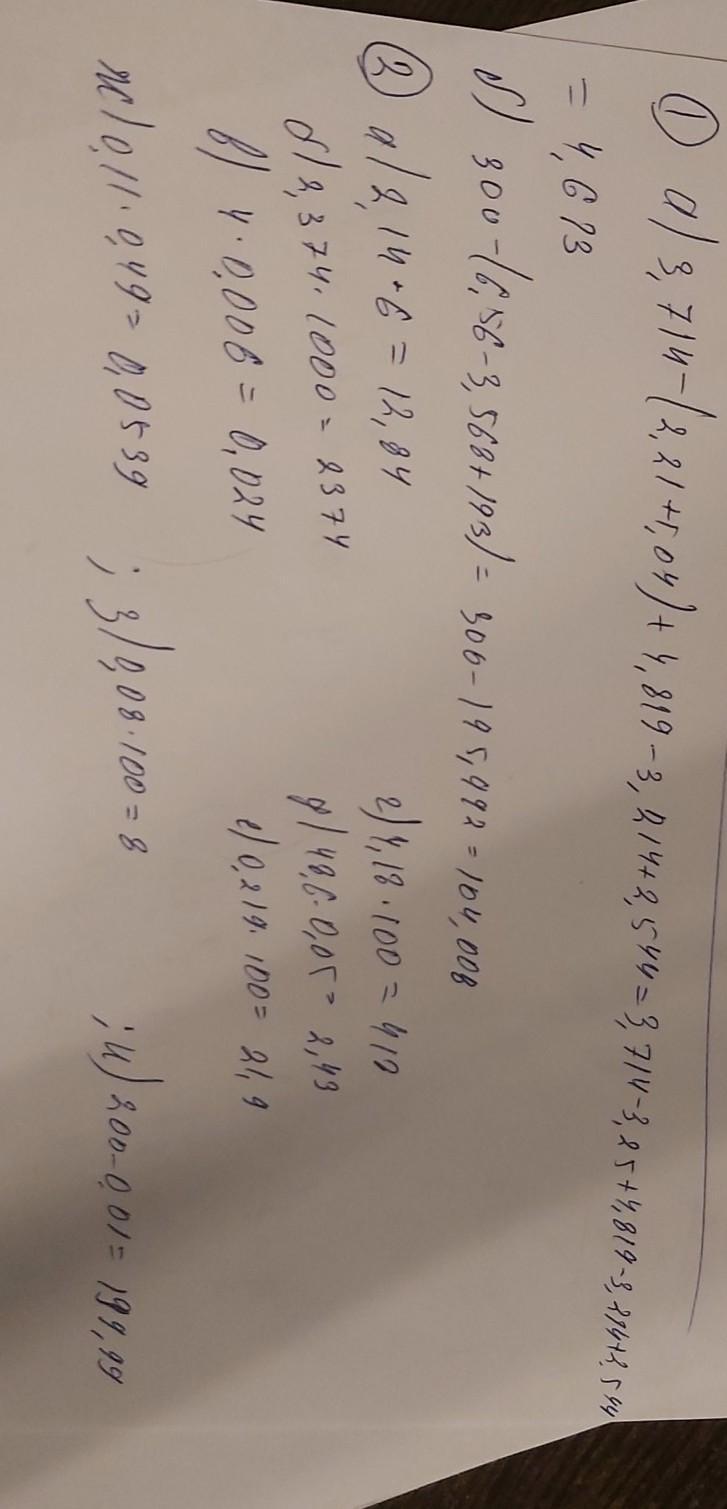 ① а) 3,714-(2,21+1,04)+4,819-3,214+2,544=3,714-3,25+4,819-3,214+2,544
= 4,613
б) 300-(6,56-3,568+193)= 300-195,992=104,008
② а) 2,14·6=12,84 г) 4,18·100=410
б) 2,374·1000=2374 д) 48,6·0,05=2,43
в) 4·0,006=0,024 е) 0,219·100=21,9
ж) 0,11·0,49=0,0539 ; з) 0,08·100=8 ; и) 200-0,01=199,99